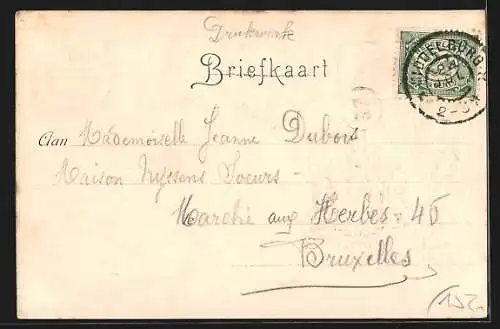 Drukwerk
Briefkaart
MIDDELBURG
Aan Mademoiselle Jeanne Dubois
Maison Nyssens Soeurs
Marché aux Herbes 45
Bruxelles
152